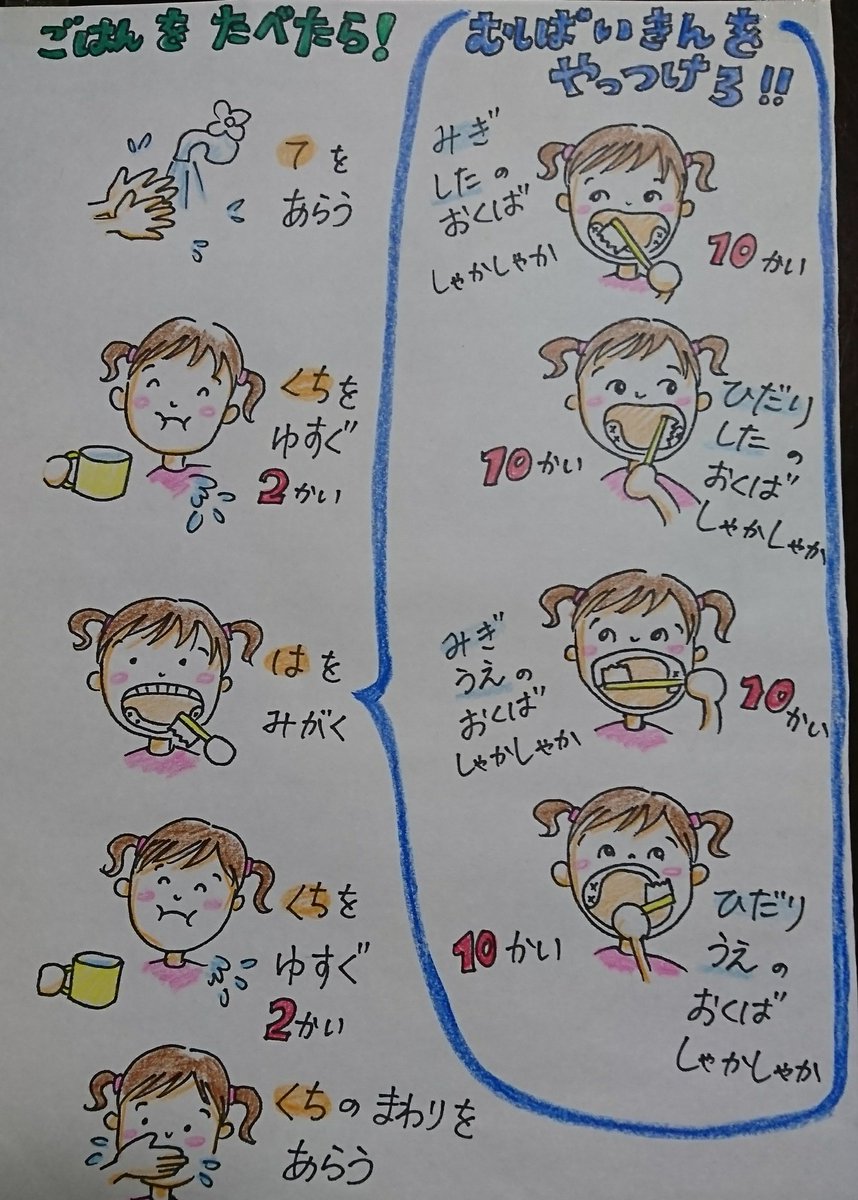 ごはんをたべたら!
てを
あらう
くちを
ゆすぐ
2かい
はを
みがく
くちを
ゆすぐ
2かい
くちのまわりを
あらう
むしばいきんを
やっつけろ!!
みぎ
したの
おくば
しゃかしゃか
10かい
ひだり
したの
おくば
しゃかしゃか
10かい
みぎ
うえの
おくば
しゃかしゃか
10かい
ひだり
うえの
おくば
しゃかしゃか
10かい